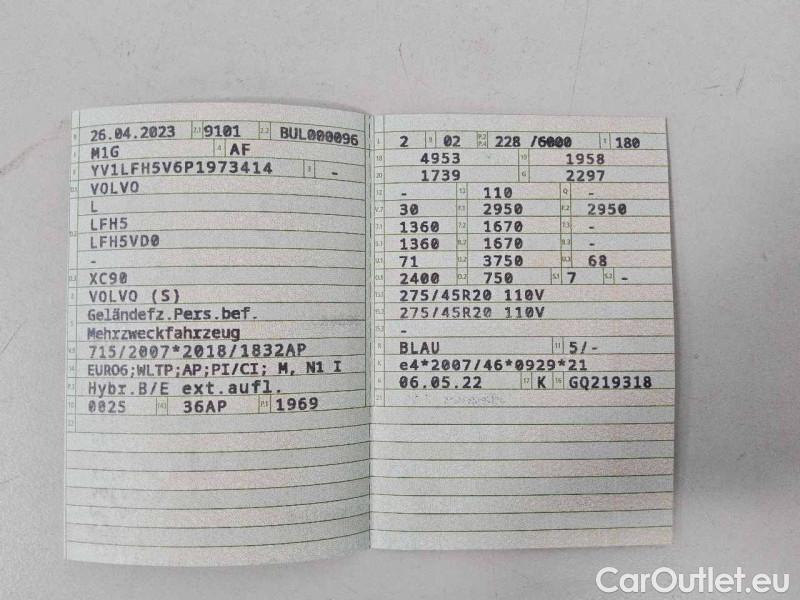 26.04.2023 2.1 9101 2.2 BUL000096
M1G 4 AF
YV1LFH5V6P1973414 3 -
D.1 VOLVO
L
D.2 LFH5
LFH5VD0
-
D.3 XC90
2 VOLVO (S)
5 Geländefz.Pers.bef.
Mehrzweckfahrzeug
V.9 715/2007*2018/1832AP
14 EURO6;WLTP;AP;PI/CI; M, N1 I
P.3 Hybr.B/E ext.aufl.
10 0025 14.1 36AP P.1 1969
22
L 2 9 02 P.2 P.4 228 /6000 T 180
18 4953 19 1958
20 1739 G 2297
12 - 13 110 Q -
V.7 30 F.1 2950 F.2 2950
7.1 1360 7.2 1670 7.3 -
8.1 1360 8.2 1670 8.3 -
U.1 71 U.2 3750 U.3 68
O.1 2400 O.2 750 S.1 7 S.2 -
15.1 275/45R20 110V
15.2 275/45R20 110V
15.3 -
R BLAU 11 5/-
K e4*2007/46*0929*21
6 06.05.22 17 K 16 GQ219318
21
CarOutlet.eu